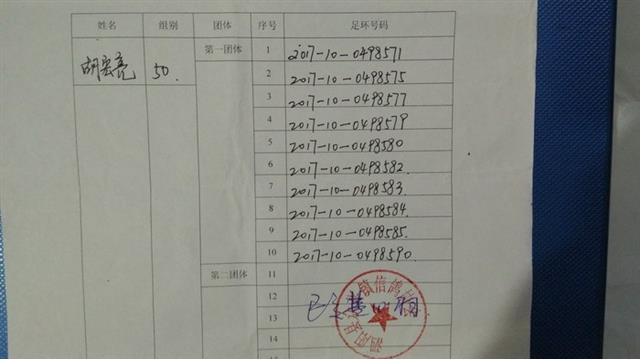 姓名 组别 团体 序号 足环号码
胡宏亮 50. 第一团体 1 2017-10-0498571
2 2017-10-0498575
3 2017-10-0498577
4 2017-10-0498579
5 2017-10-0498580
6 2017-10-0498582.
7 2017-10-0498583.
8 2017-10-0498584.
9 2017-10-0498585.
10 2017-10-0498590.
第二团体 11
12
13
14
信鸽